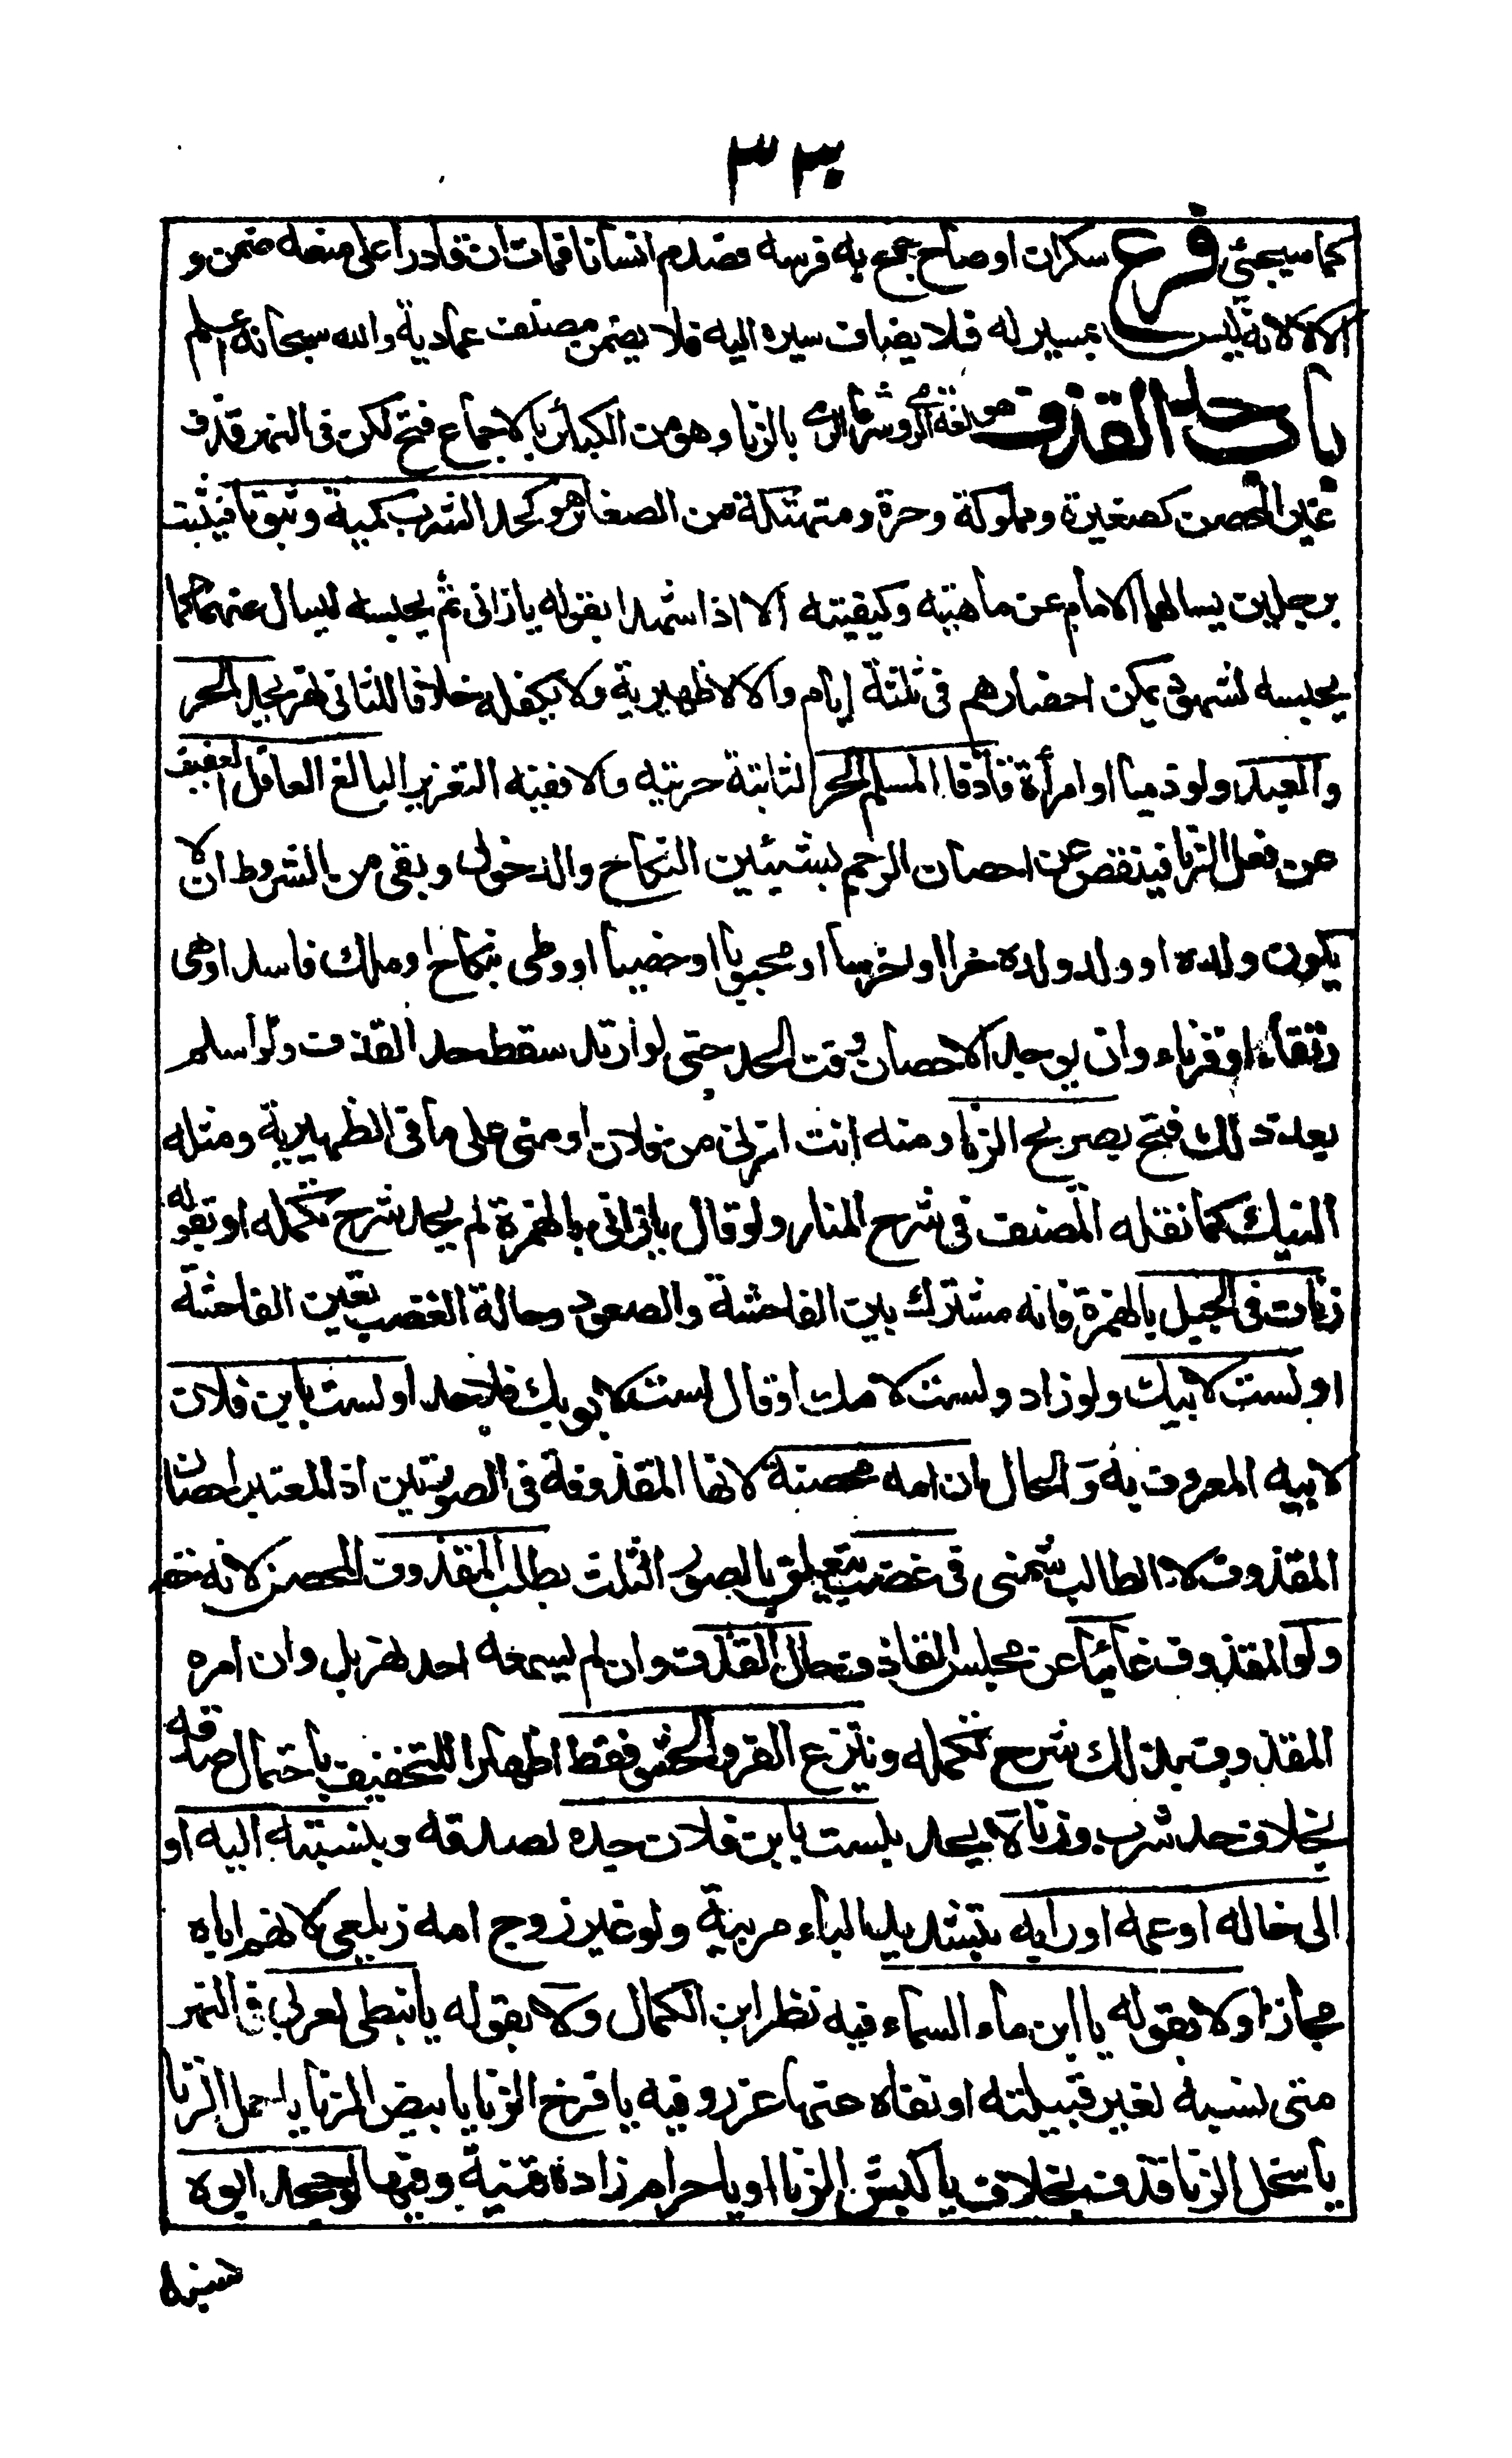 ٣٣٠
كما سيجئ فرع سكران او صاح جمح به فرسه فصدم انسانا فمات ان قادرا على منعه ضمن و
الا لا لانه ليس بمسير له فلا يضاف سيره اليه فلا يضمن مصنف عمادية والله سبحانه اعلم
باب حد القذف هو لغة الرمي وشرعا الرمي بالزنا وهو من الكبائر بالاجماع فتح لكن في النهر قذف
غير المحصن كصغيرة ومملوكة وحرة ومتهتكة من الصغائر هو كحد الشرب كمية وثبوتا فيثبت
برجلين يسالهما الامام عن ماهيته وكيفيته الا اذا شهدا بقوله يا زاني ثم يحبسه ليسال عنهما كما
يحبسه لشهود يمكن احضارهم في ثلثة ايام والا لا ظهيرية ولا يكفله خلافا للثاني نهر يحد الحر
والعبد ولو ذميا او امرأة قاذف المسلم الحر الثابتة حريته والا ففيه التعزير البالغ العاقل العفيف
عن فعل الزنا فينقص عن احصان الرجم بشيئين النكاح والدخول وبقي من الشروط ان لا
يكون ولده او ولد ولده خرا او اخرسا او مجبوبا او خصيا او وطى بنكاح او ملك فاسد او هى
رتقاء او قرناء وان يوجد الاحصان وقت الحد حتى لو ارتد سقط حد القذف ولو اسلم
بعد ذلك فتح بصريح الزنا ومنه انت ازنى من فلان او منى على ما في الظهيرية ومثله
النيك كما نقله المصنف في شرح المنار ولو قال يا زانئ بالهمزة لم يحد شرح تكمله او بقوله
زنات في الجبل بالهمزة فانه مشترك بين الفاحشة والصعود وحالة الغضب تعين الفاحشة
او لست لابيك ولو زاد ولست لامك او قال لست لابويك فلا حد او لست بابن فلان
لابيه المعروف به و الحال ان امه محصنة لانها المقذوفة في الصورتين اذ المعتبر احصان
المقذوف لا الطالب شمنى في غضب يتعلق بالصور الثلث بطلب المقذوف المحصن لانه حقه
ولو المقذوف غائبا عن مجلس القاذف حال القذف وان لم يسمعه احد نهر بل وان امره
المقذوف بذلك شرح تكمله وينزع الفرو والحشو فقط اظهارا للتخفيف باحتمال صدقه
بخلاف حد شرب وزنا لا يحد بلست بابن فلان جده لصدقه وبنسبته اليه او
الى خاله او عمه او رابه بتشديد الباء مربيه ولو غير زوج امه زيلعي لانهم اباه
مجازا ولا بقوله يا ابن ماء السماء فيه نظر ابن الكمال ولا بقوله يا نبطي لعربي في النهر
متى نسبه لغير قبيلته او نفاه عنها عزر وفيه يا فرخ الزنا يا بيض الزنا يا حمل الزنا
يا سخل الزنا قذف بخلاف يا كبش الزنا او يا حرام زاده قنية وفيها لو جحد ابوه